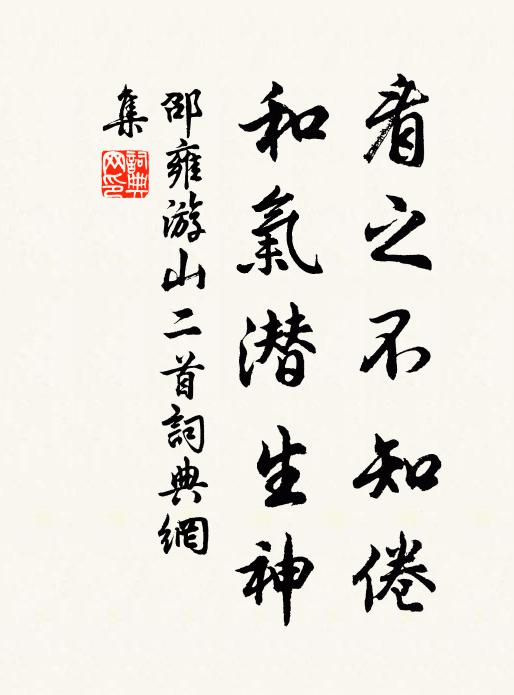 看之不知倦
和氣潜生神
邵雍游山二首詞典網
集
詞典
网印